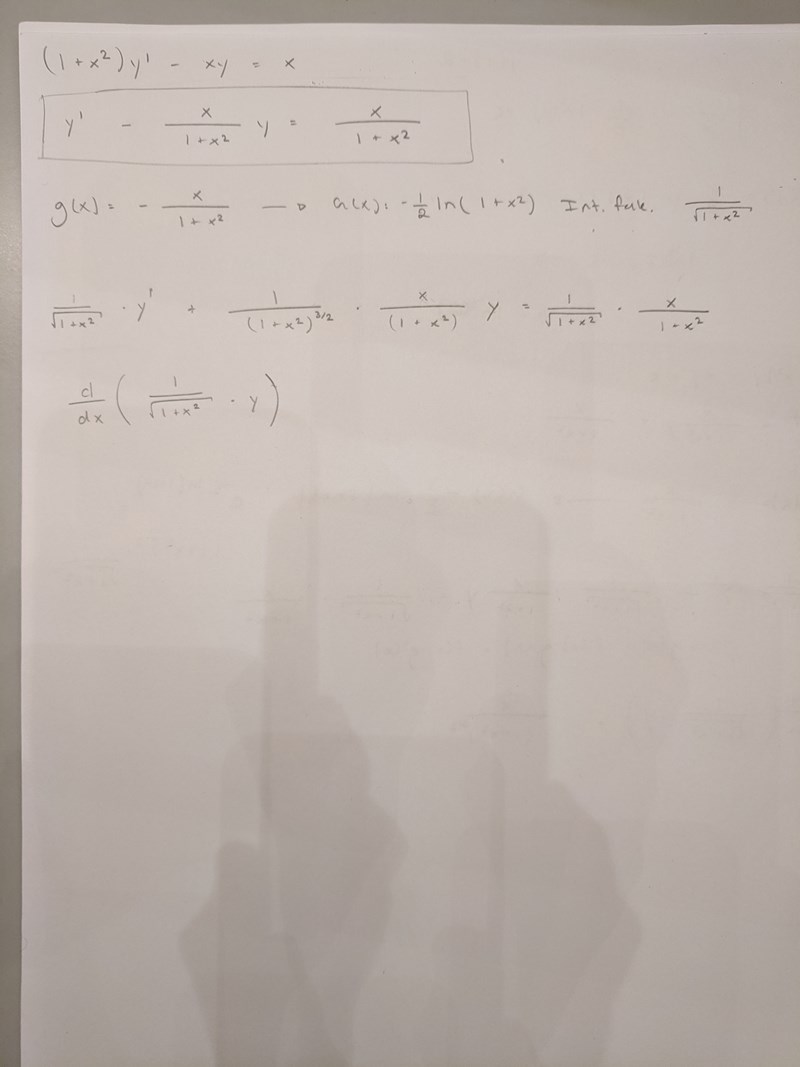 (1+x²)y' - xy = x
y' - x/(1+x²) y = x/(1+x²)
g(x) = - x/(1+x²) → G(x): -1/2 ln(1+x²) Int. fak. 1/√(1+x²)
1/√(1+x²) · y' + 1/(1+x²)^(3/2) · x/(1+x²) y = 1/√(1+x²) · x/(1+x²)
d/dx ( 1/√(1+x²) · y )